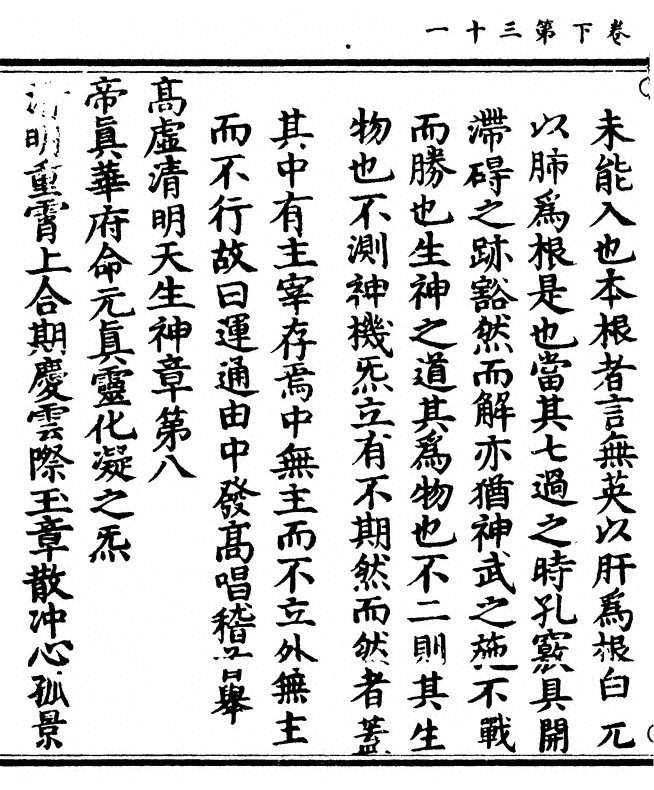 卷下第三十一
未能入也本根者言無英以肝爲根白元
以肺爲根是也當其七過之時孔竅具開
滯碍之跡豁然而解亦猶神武之施不戰
而勝也生神之道其爲物也不二則其生
物也不測神機炁立有不期然而然者蓋
其中有主宰存焉中無主而不立外無主
而不行故曰運通由中發高唱稽首舉
高虛清明天生神章第八
帝眞華府命元眞靈化凝之炁
清明重霄上合期慶雲際玉章散冲心孤景